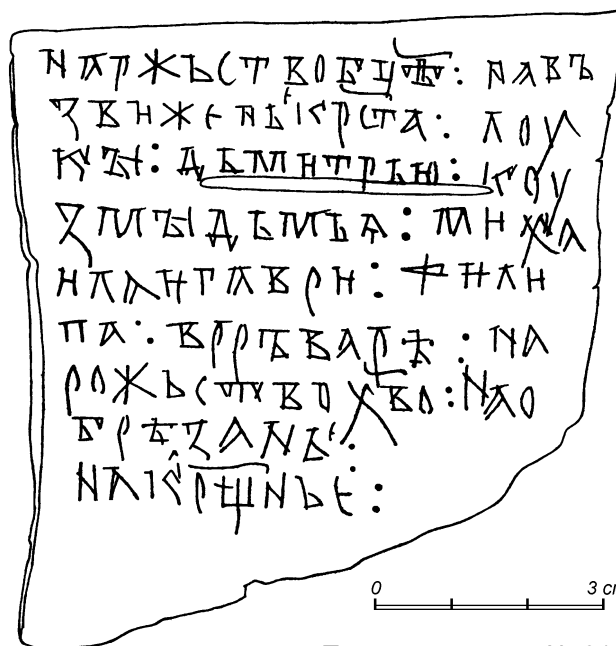 наржьствобцѣ : навъ
звнженьекрста : лоу
къі : дьмнтрью : коу
змъідьмьѧ : мнха
нлангаврн : фнлн
па : врръварѣ : на
рожьствохво : нао
брѣзанье :
накрщнье :
0 3 cm